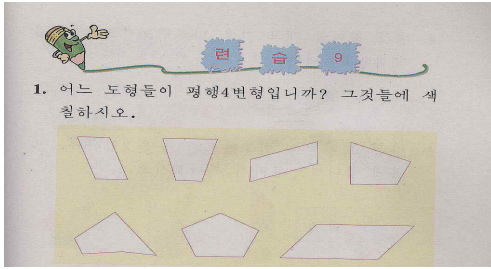 련 습 9
1. 어느 도형들이 평행4변형입니까? 그것들에 색
칠하시오.